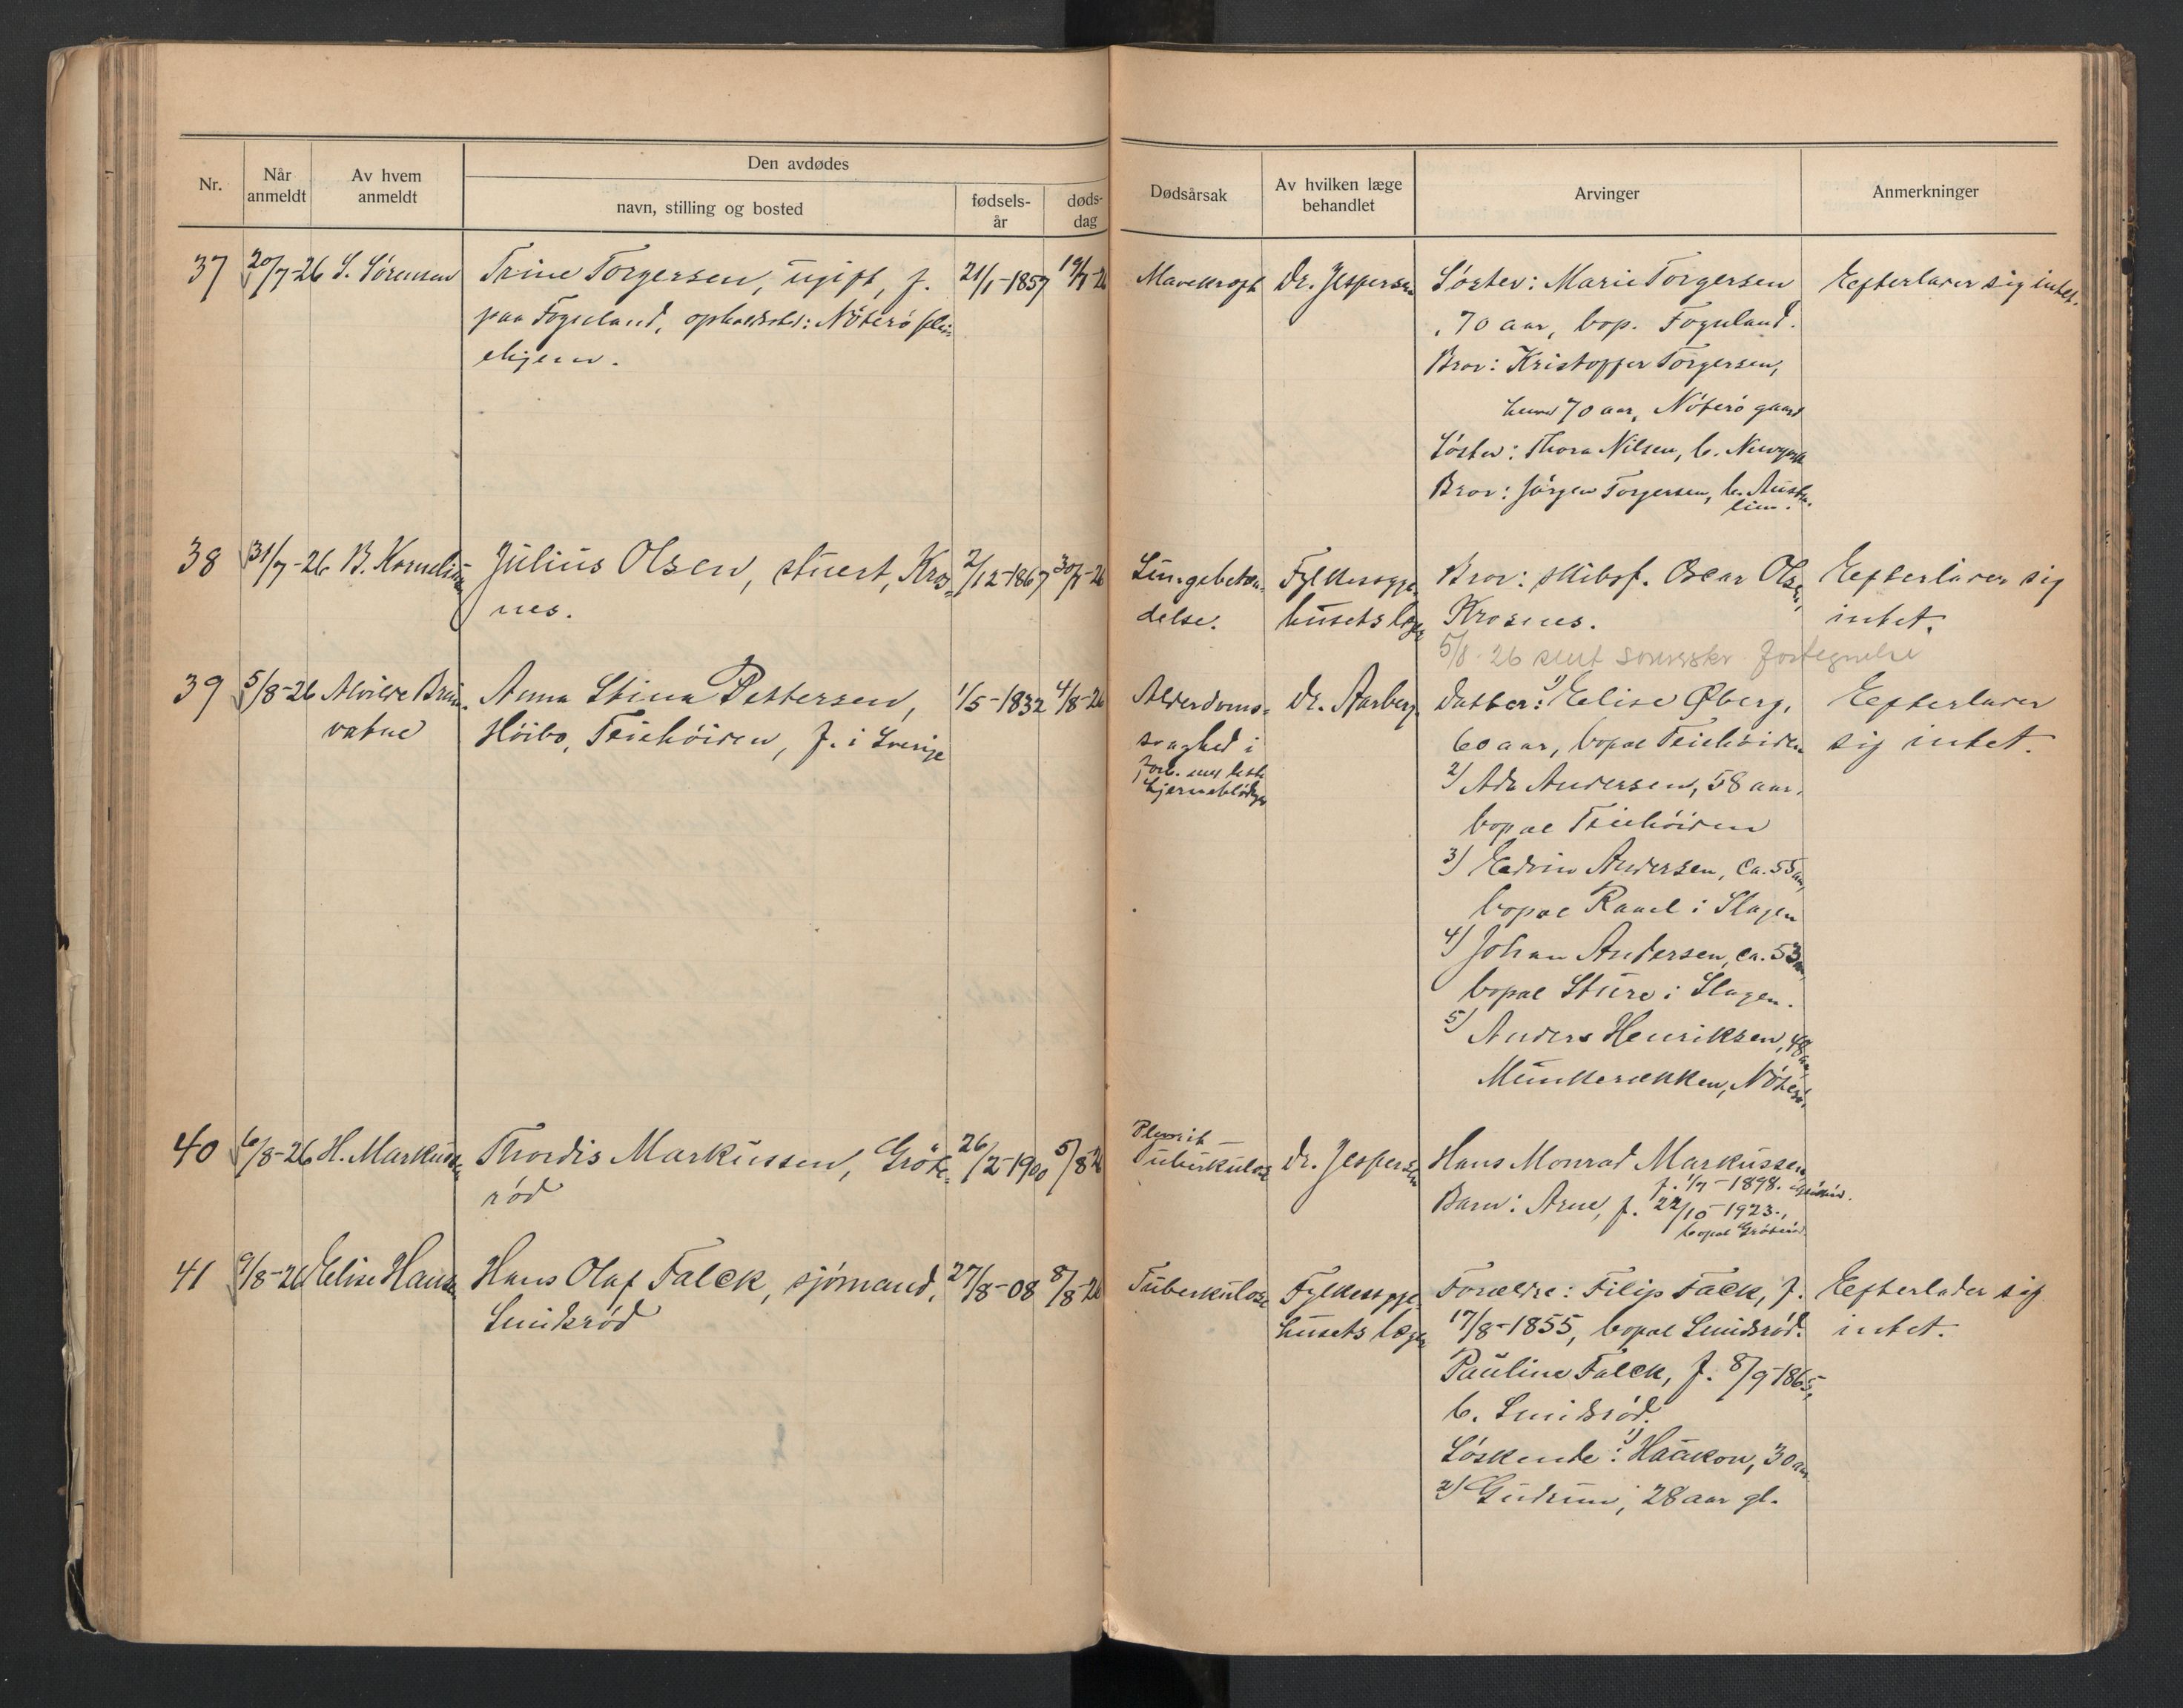 Nr.
Når anmeldt
Av hvem anmeldt
Den avdødes
navn, stilling og bosted
fødsels-år
døds-dag
Dødsårsak
Av hvilken læge behandlet
Arvinger
Anmerkninger
37 20/7-26 S. Sörensen Trine Torgersen, ugift, f. 21/1-1857 19/7-26 Mavekræft Dr. Jespersen Söster: Marie Torgersen Efterlader sig intet.
paa Fognland, opholdssted: Nöterö plei-
, 70 aar, bop. Fognland.
ehjem.
Bror: Kristoffer Torgersen,
70 aar, Nöterö gaard
Söster: Thora Nilsen, b. Newyork
Bror: Jörgen Torgersen, b. Austra-
lien.
38 31/7-26 B. Kornelius Julius Olsen, stuert, Kros- 2/12-1867 30/7-26 Lungebeten- Fylkessyge- Bror: skibsf. Oscar Olsen, Efterlader sig
nes. delse. husets læge Krosnes. intet.
5/8-26 sent fortegnelse
39 5/8-26 Alvilde Brun- Anna Stina Pettersen, 1/5-1832 4/8-26 Alderdoms- Dr. Aarberg. Datter: 1) Elise Øberg, Efterlader
vatne Höibo, Teiehöiden, f. i Sverige svaghed i 60 aar, bopæl Teiehöiden sig intet.
forb. med
hjerneblödning
2) Ada Andersen, 58 aar,
bopæl Teiehöiden
3) Edvin Andersen, ca. 55 aar,
bopæl Rael i Slagen
4) Johan Andersen, ca. 53 aar,
bopæl Sture i Slagen.
5) Anders Henriksen, 48 aar,
Munkerekken, Nöterö.
40 6/8-26 H. Markussen Thordis Markussen, Gröte- 26/2-1900 5/8-26 Pleurit - Dr. Jespersen Hans Monrad Markussen,
röd Tuberkulose f. 1/7-1898. Gröteröd.
Barn: Arne, f. 22/10-1923.,
bopæl Gröteröd.
41 9/8-26 Elise Hansen Hans Olaf Falck, sjömand, 27/8-08 8/8-26 Tuberkulose Fylkessyge- Forældre: Filip Falck, f. Efterlader sig
Smidsröd husets læge 17/8-1855, bopæl Smidsröd. intet.
Pauline Falck, f. 8/9-1865,
b. Smidsröd.
Söskende: 1) Haakon, 30 aar
2) Gudrun, 28 aar gl.